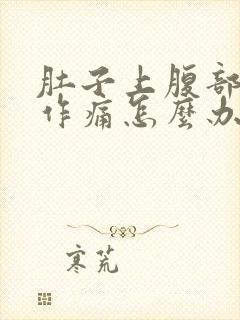 肚子上腹部
作痛怎麼办
寒荒